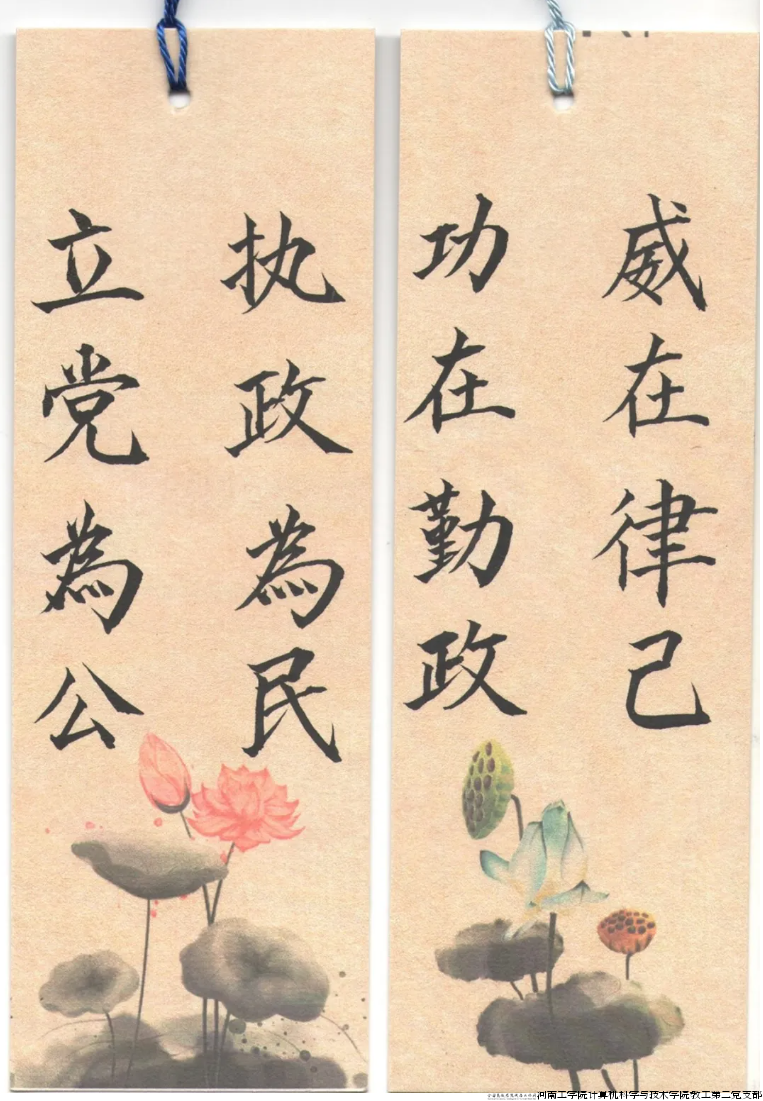 立党為公
执政為民
功在勤政
威在律己
河南工学院计算机科学与技术学院教工第二党支部